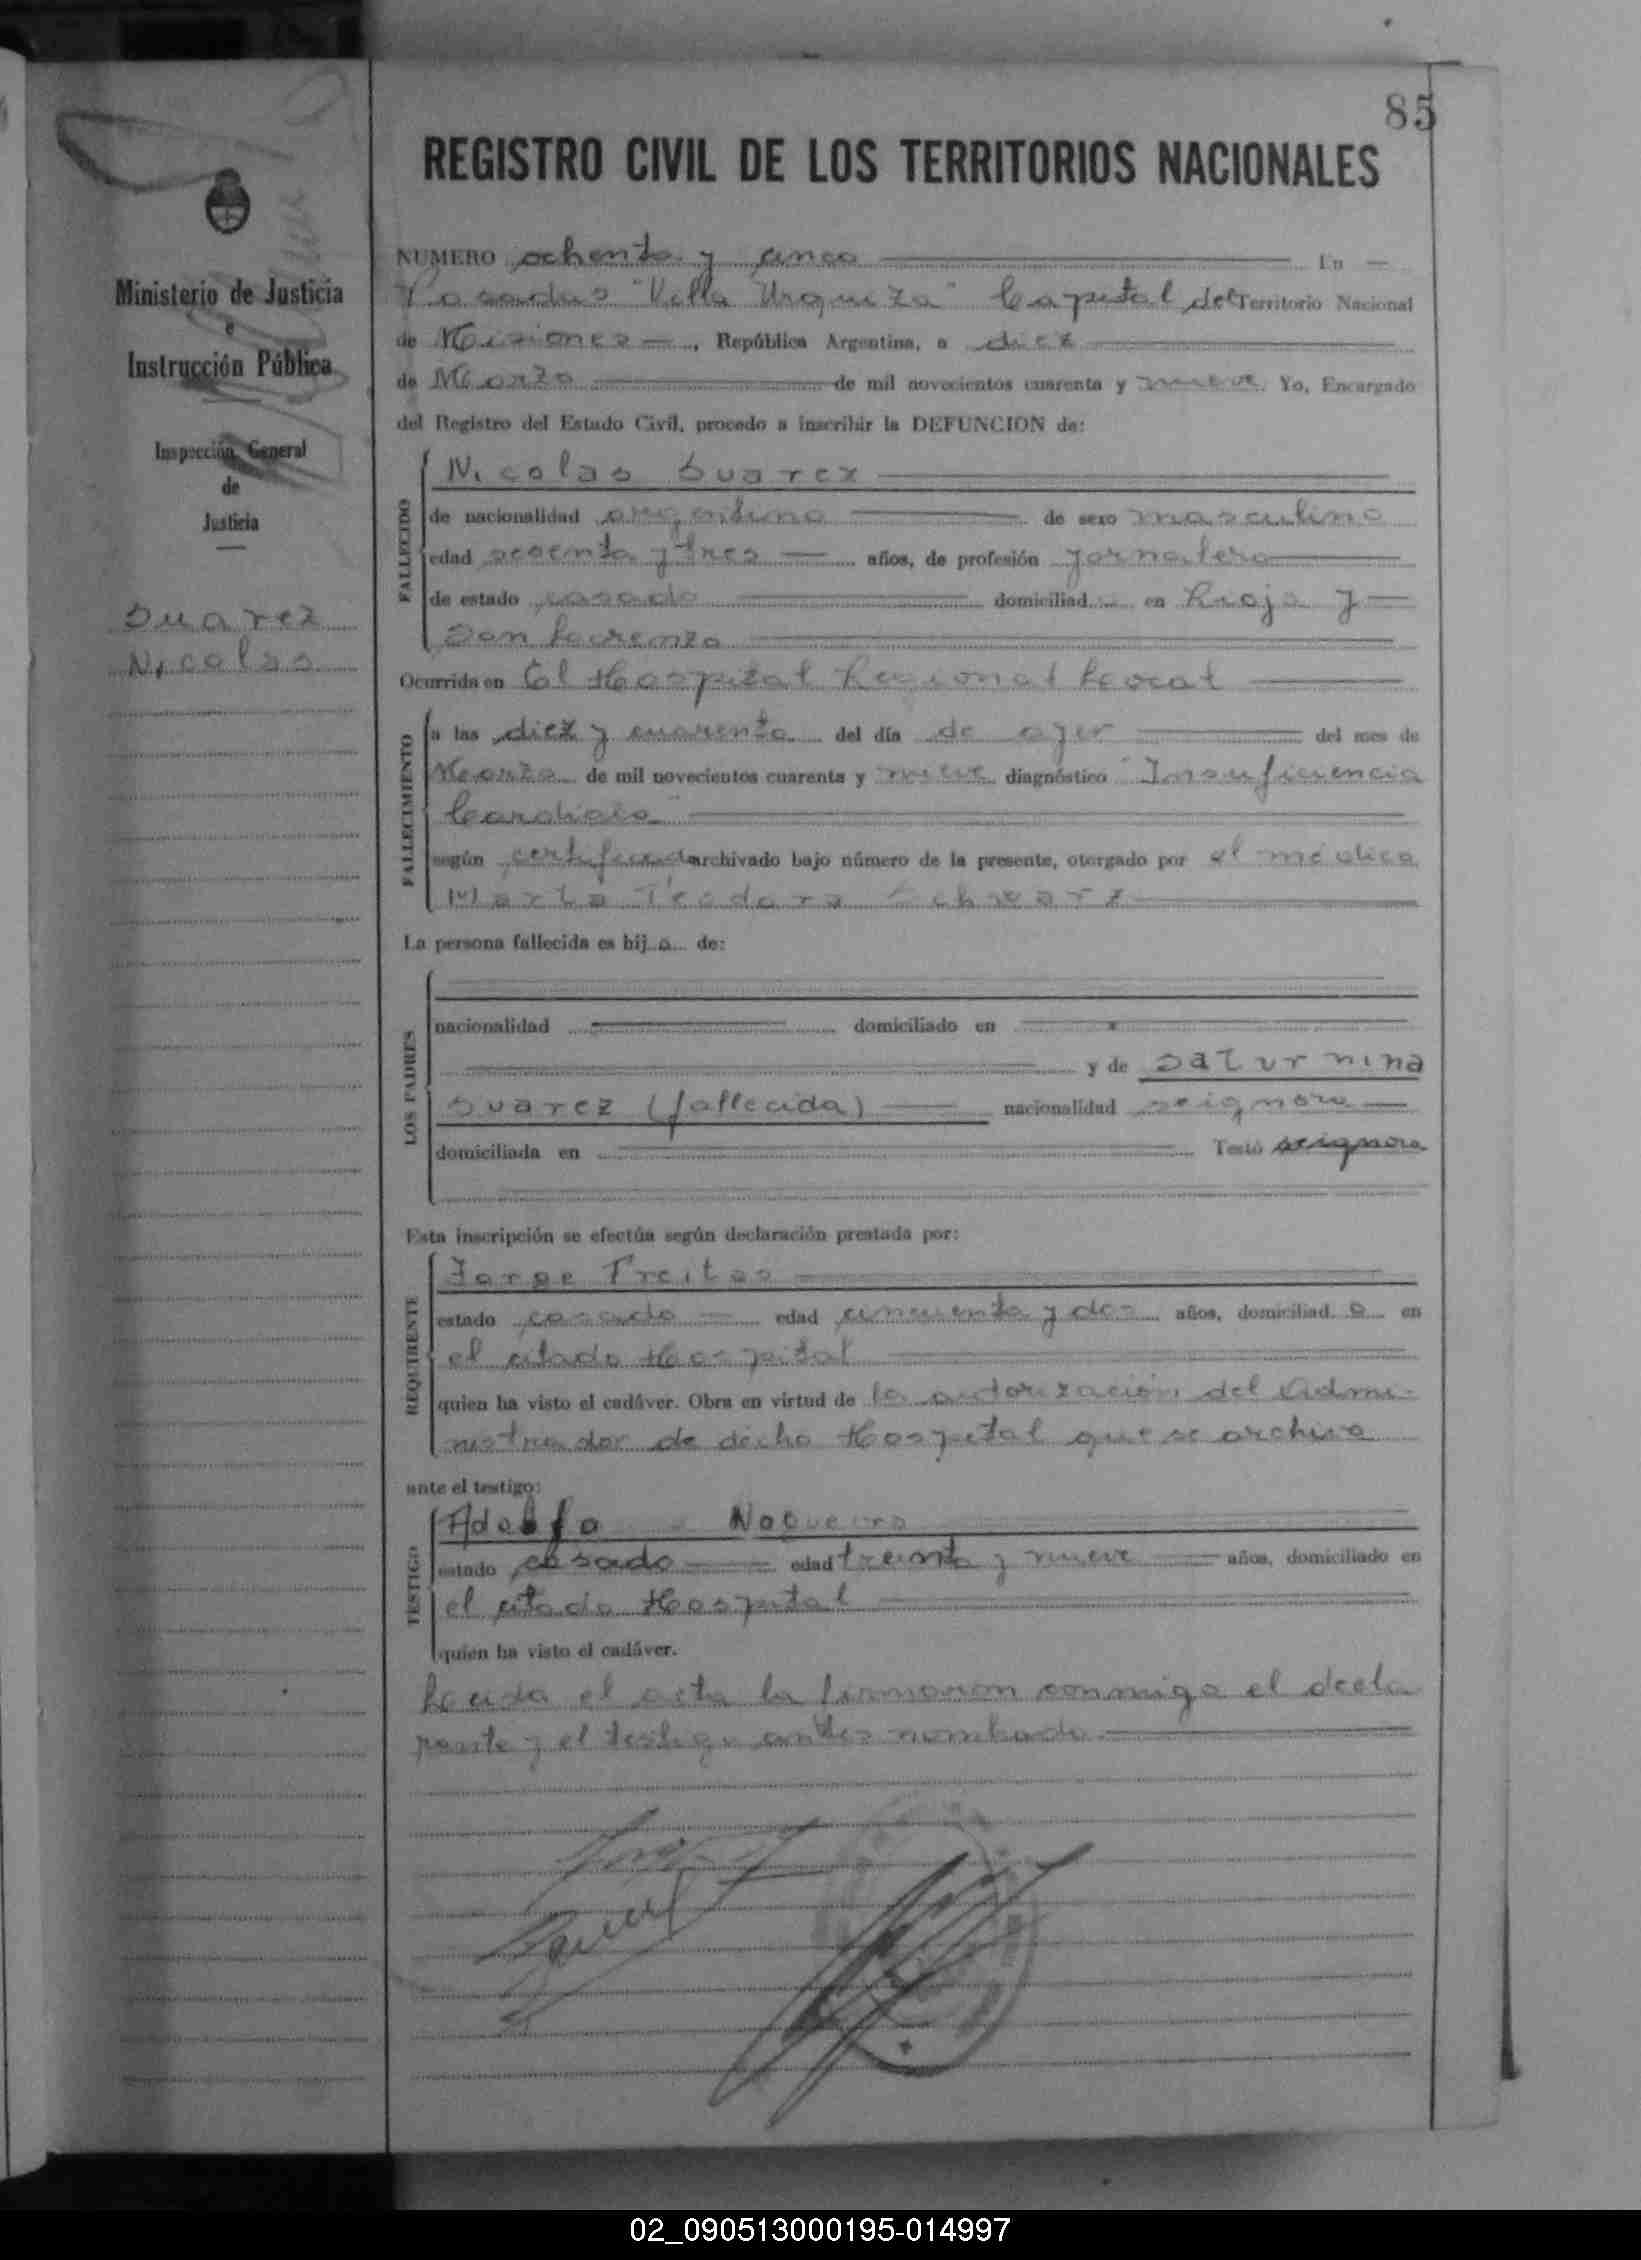 85
REGISTRO CIVIL DE LOS TERRITORIOS NACIONALES
Ministerio de Justicia
e
Instrucción Pública
Inspección General
de
Justicia
Suarez
Nicolas
NUMERO ochenta y cinco En
Posadas "Villa Urquiza" Capital del Territorio Nacional
de Misiones, República Argentina, a diez
de Marzo de mil novecientos cuarenta y nueve Yo, Encargado
del Registro del Estado Civil, procedo a inscribir la DEFUNCION de:
FALLECIDO
Nicolas Suarez
de nacionalidad argentino de sexo masculino
edad sesenta y tres años, de profesión jornalero
de estado casado domiciliad o en Rioja y
San Lorenzo
Ocurrida en El Hospital Regional Local
FALLECIMIENTO
a las diez y cuarenta del día de ayer del mes de
Marzo de mil novecientos cuarenta y nueve diagnóstico "Insuficiencia
Cardiaca"
según certificado archivado bajo número de la presente, otorgado por el médico
Marta Teodora Schwarz
La persona fallecida es hij o de:
LOS PADRES
nacionalidad domiciliado en
y de Saturnina
Suarez (fallecida) nacionalidad se ignora
domiciliada en Testó se ignora
Esta inscripción se efectúa según declaración prestada por:
REQUIRENTE
Jorge Freitas
estado casado edad cincuenta y dos años, domiciliad o en
el citado Hospital
quien ha visto el cadáver. Obra en virtud de la autorización del Admi-
nistrador de dicho Hospital que se archiva
ante el testigo:
TESTIGO
Adolfo Nogueira
estado casado edad treinta y nueve años, domiciliado en
el citado Hospital
quien ha visto el cadáver.
Leida el acta la firmaron conmigo el decla
rante y el testigo antes nombrado
02_090513000195-014997